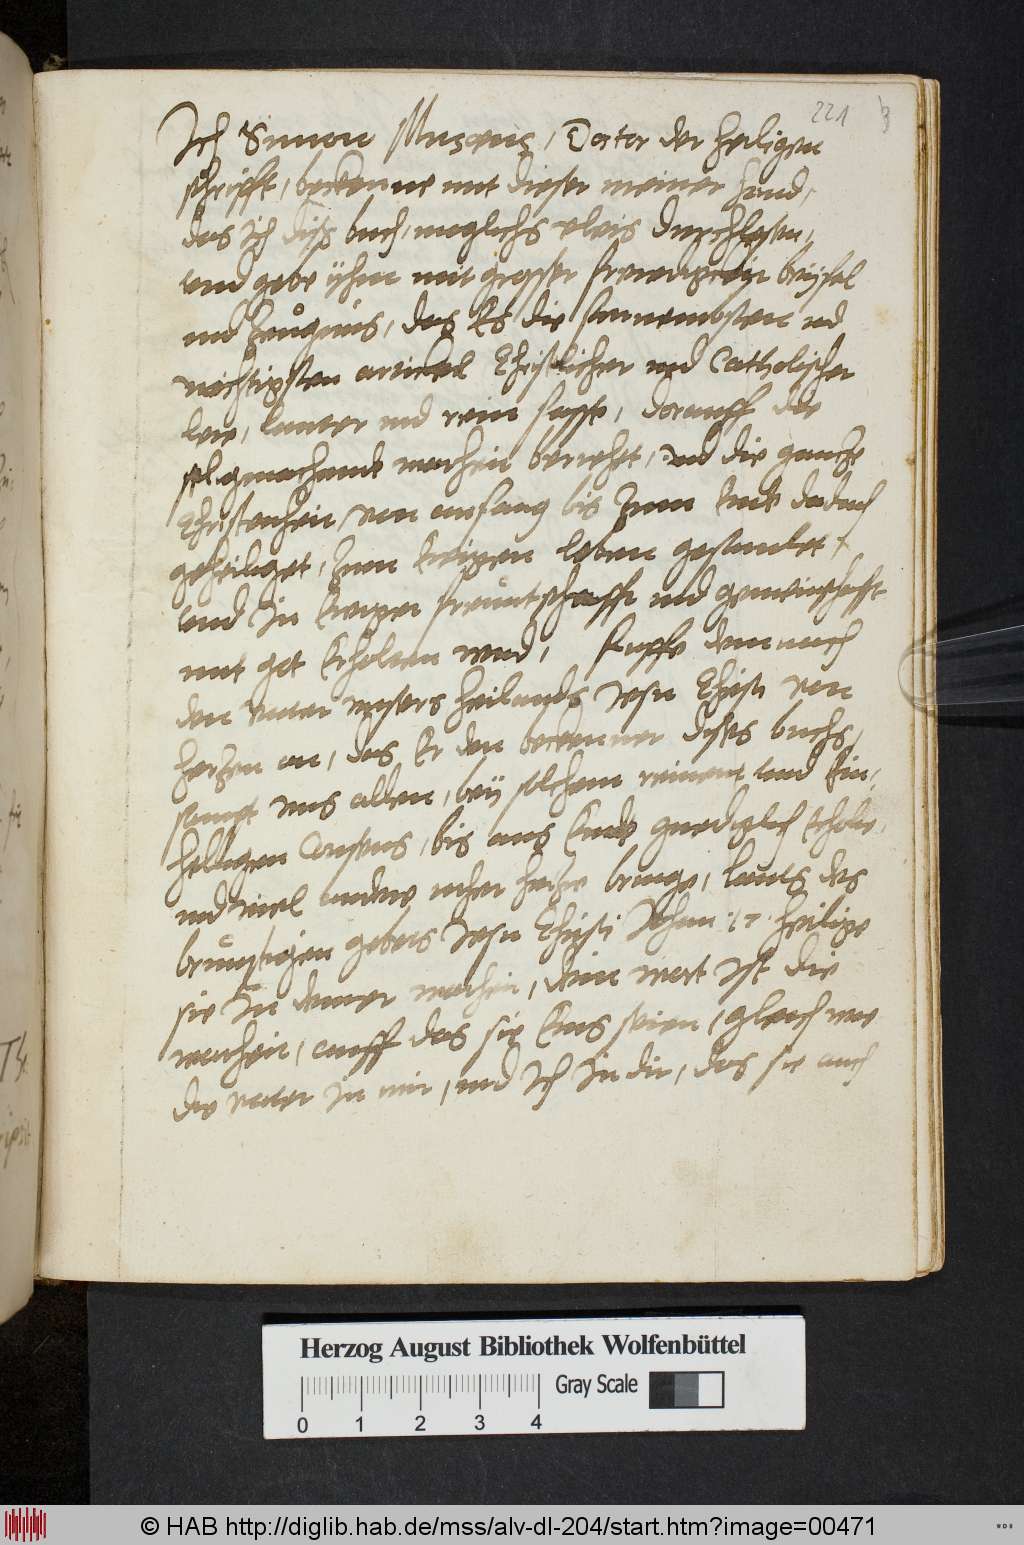 221
Ich Simon Musaeus, Doctor der heiligen
schrifft, bekenne mit dieser meiner hand,
das ich diß buch, moglichs vleis durchlesen,
und gebe ihm mit grosser beyfal
und zeugnüs, das es die furnembsten und
wichtigsten artickel Christlicher und Catholischer
lere, lauter und rein fasse, darauff die
seligmachende warheit beruhet, und die gantze
Christenheit von anfang bis zum ende dadurch
geheiliget, zum ewigen leben
und in ewiger freuntschafft und gemeinschafft
mit got erhalten wird, ruffe demnach
den vater unsers heilands Jesu Christi von
hertzen an, das er den bekenner dieses buchs,
sampt uns allen, bey solchem reinem und ein,
helligen Consens, bis ans ende gnediglich erhalte,
und viel andere neher herzu bringe, lauts des
brünstigen gebets Jesu Christi Johan: 17. heilige
sie in deiner warheit, dein wort ist die
warheit, auff das sie eins seien, gleich wie
du vater in mir, und ich in dir, das sie auch
Herzog August Bibliothek Wolfenbüttel
Gray Scale
0 1 2 3 4
© HAB http://diglib.hab.de/mss/alv-dl-204/start.htm?image=00471